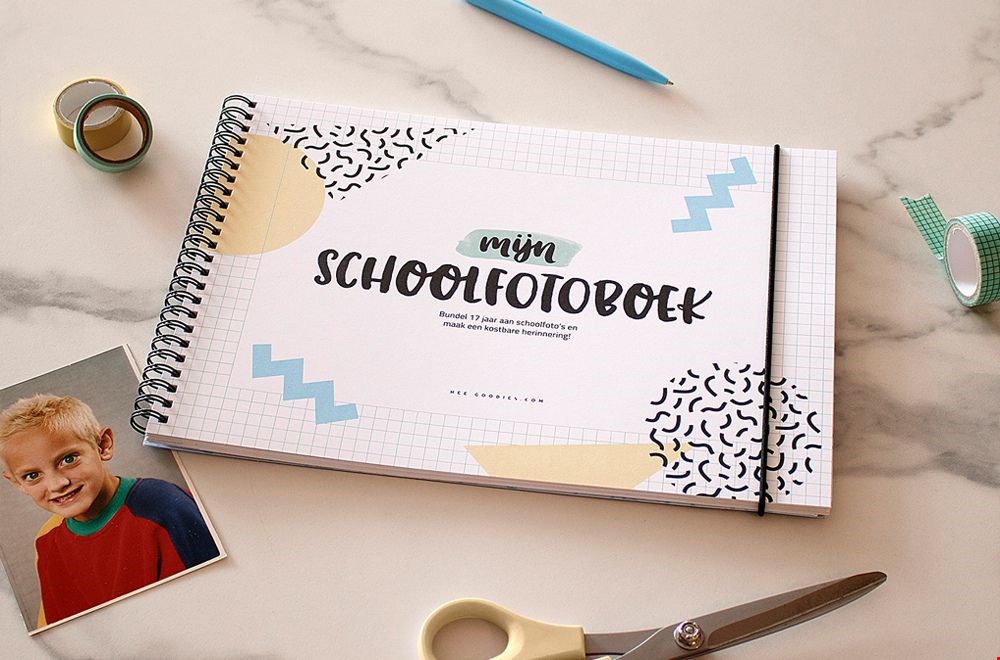 mijn
SCHOOLFOTOBOEK
Bundel 17 jaar aan schoolfoto's en
maak een kostbare herinnering!
HEE GOODIES.COM